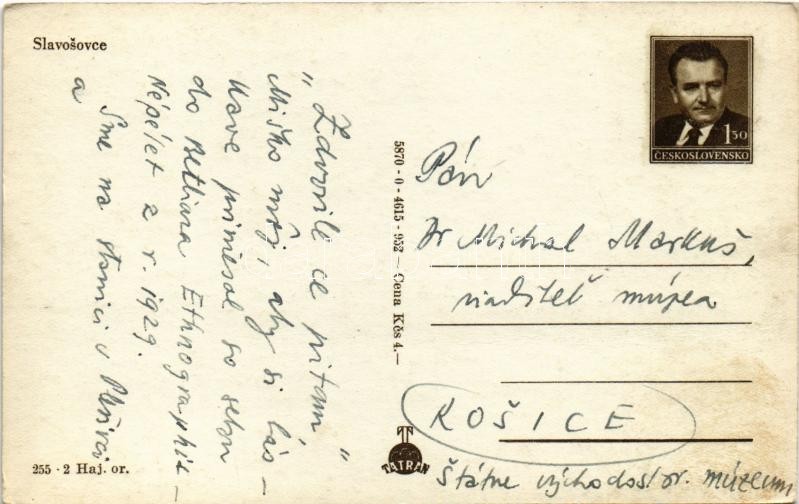 Slavošovce
„Zdvorile ťa pitam"
Miško môj, aby si lás-
kave priniesol so sebou
do Betliara Ethnographia-
Népélet z r. 1929.
Sme na stanici v Plešivci
a
255 - 2 Haj. or.
5870 - 0 - 4615 - 952 — Cena Kčs 4.—
TATRAN
1 50
ČESKOSLOVENSKO
Pán
Dr Michal Markuš,
riaditeľ múzea
KOŠICE
Štátne východoslov. múzeum